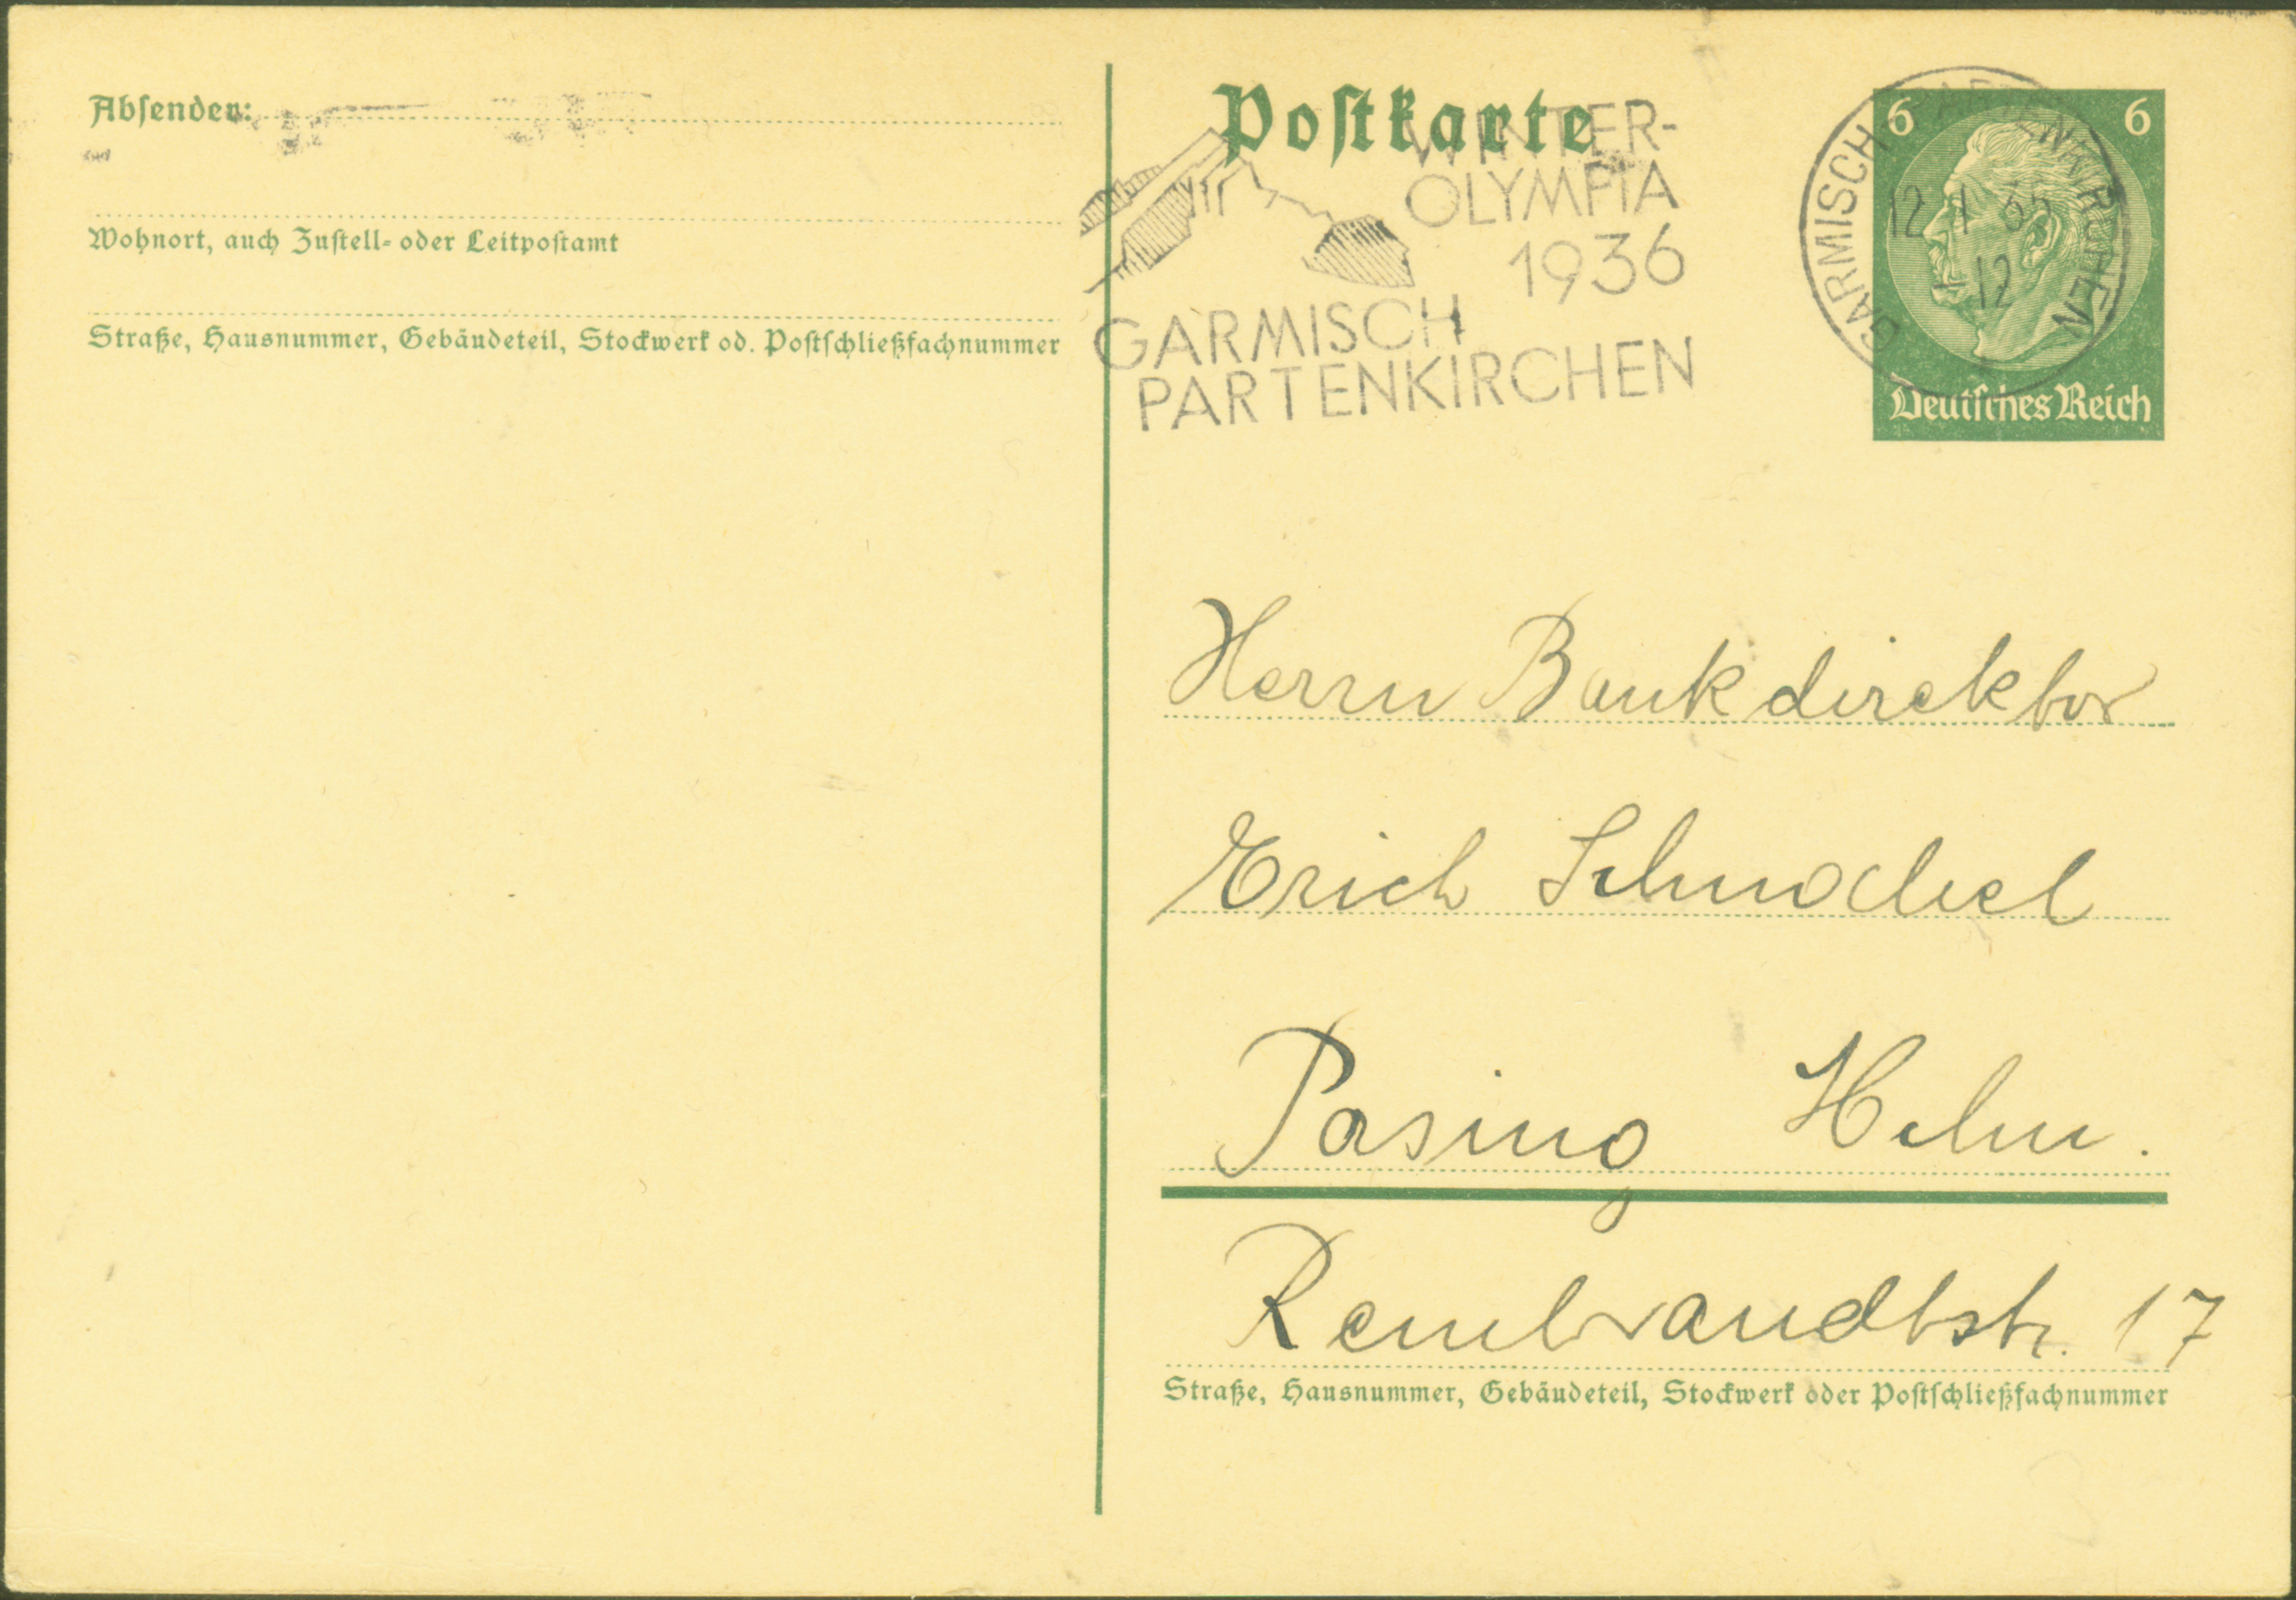 Absender:
Wohnort, auch Zustell- oder Leitpostamt
Straße, Hausnummer, Gebäudeteil, Stockwerk od. Postschließfachnummer
Postkarte
WINTER-
OLYMPIA
1936
GARMISCH
PARTENKIRCHEN
GARMISCH-PARTENKIRCHEN
12 1 35
-12
6 6
Deutsches Reich
Herrn Bankdirektor
Erich
Pasing
Rembrandtstr. 17
Straße, Hausnummer, Gebäudeteil, Stockwerk oder Postschließfachnummer